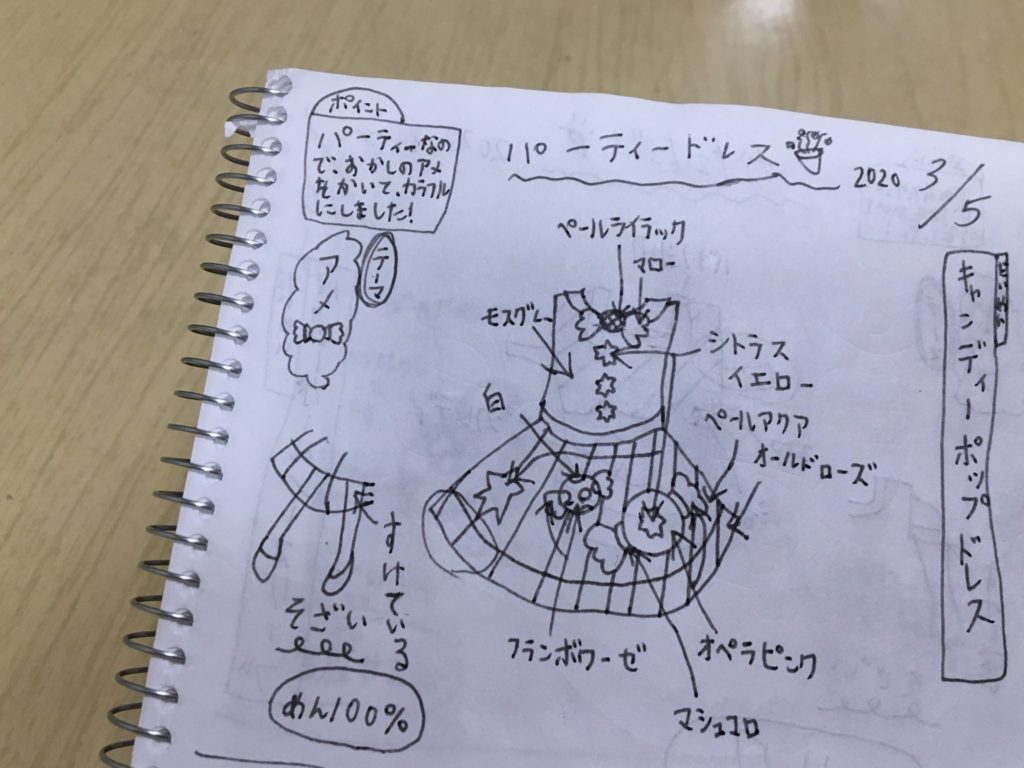 ポイント
パーティーなの
で、おかしのアメ
をかいて、カラフル
にしました!
パーティードレス
2020 3/5
テーマ
アメ
キャンディーポップドレス
ペールライラック
マロー
モスグレー
シトラス
イエロー
白
ペールアクア
オールドローズ
すけている
そざい
めん100%
フランボワーゼ
オペラピンク
マシュコロ